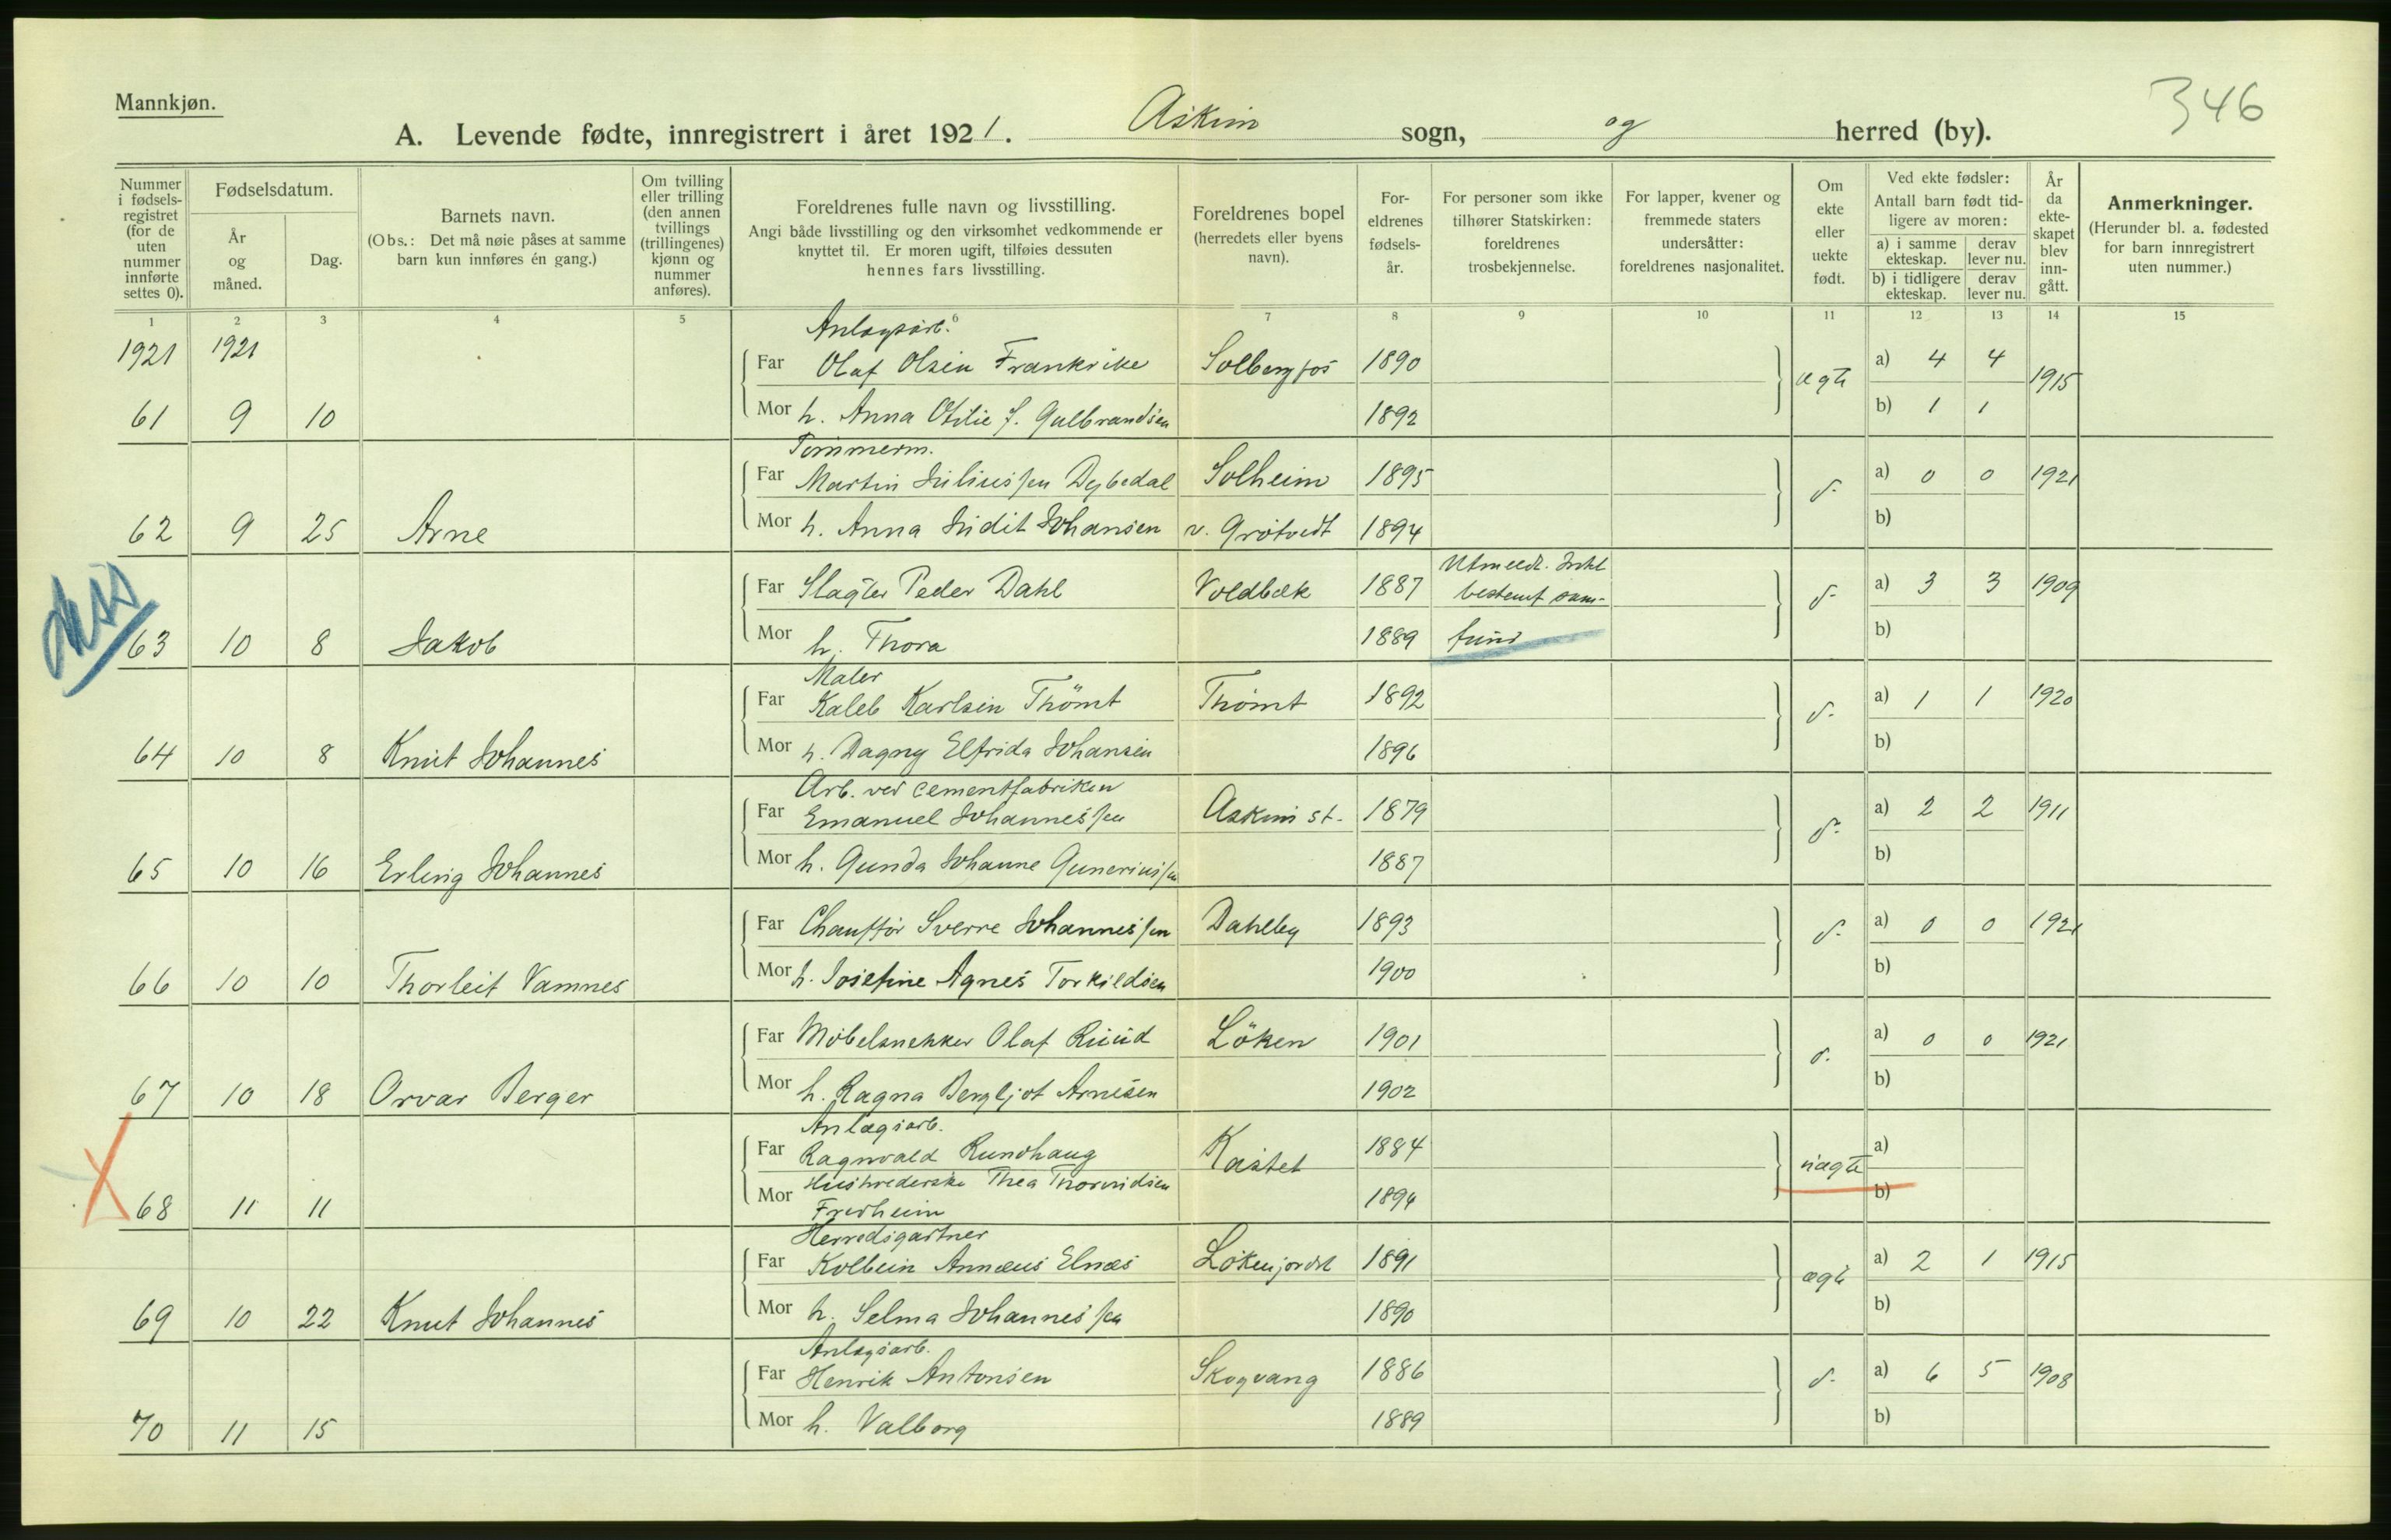 Mannkjøn.
346
A. Levende fødte, innregistrert i året 1921. Askim sogn, og herred (by).
Nummer i fødsels-registret (for de uten nummer innførte settes 0).
Fødselsdatum.
År og måned.
Dag.
Barnets navn.
(Obs.: Det må nøie påses at samme barn kun innføres én gang.)
Om tvilling eller trilling (den annen tvillings (trillingenes) kjønn og nummer anføres).
Foreldrenes fulle navn og livsstilling.
Angi både livsstilling og den virksomhet vedkommende er knyttet til. Er moren ugift, tilføies dessuten hennes fars livsstilling.
Foreldrenes bopel (herredets eller byens navn).
For-eldrenes fødsels-år.
For personer som ikke tilhører Statskirken: foreldrenes trosbekjennelse.
For lapper, kvener og fremmede staters undersåtter: foreldrenes nasjonalitet.
Om ekte eller uekte født.
Ved ekte fødsler: Antall barn født tid-ligere av moren:
a) i samme ekteskap.
derav lever nu.
b) i tidligere ekteskap.
derav lever nu.
År da ekte-skapet blev inn-gått.
Anmerkninger.
(Herunder bl. a. fødested for barn innregistrert uten nummer.)
1 2 3 4 5 6 7 8 9 10 11 12 13 14 15
1921 1921
Anlægsarb.
Far Olaf Olsen Frankrike Solbergfos 1890 ægte a) 4 4 1915
61 9 10 Mor h. Anna Otilie f. Gulbrandsen 1892 b) 1 1
Tømmerm.
Far Martin Juliussen Dybedal Solheim 1895 d. a) 0 0 1921
62 9 25 Arne Mor h. Anna Judit Johansen v. Grøtvedt 1894 b)
Utmeldt. Intet
Far Slagter Peder Dahl Voldbæk 1887 bestemt sam- d. a) 3 3 1909
63 10 8 Jakob Mor h. Thora 1889 fund b)
Maler
Far Kaleb Karlsen Thömt Thömt 1892 d. a) 1 1 1920
64 10 8 Knut Johannes Mor h. Dagny Elfrida Johansen 1896 b)
Arb. ved cementfabriken
Far Emanuel Johannessen Askim st. 1879 d. a) 2 2 1911
65 10 16 Erling Johannes Mor h. Gunda Johanne Guneriussen 1887 b)
Far Chauffør Sverre Johannessen Dahleby 1893 d. a) 0 0 1921
66 10 10 Thorleif Vamnes Mor h. Josefine Agnes Torkildsen 1900 b)
Far Møbelsnekker Olaf Ruud Löken 1901 d. a) 0 0 1921
67 10 18 Orvar Berger Mor h. Ragna Bergljot Arnesen 1902 b)
Anlægsarb.
Far Ragnvald Rundhaug Kastet 1884 uægte a)
68 11 11 Mor Husholderske Thea Thorvidsen 1894 b)
Fredheim
Herredsgartner
Far Kolbein Annæus Elnæs Lökenjordet 1891 ægte a) 2 1 1915
69 10 22 Knut Johannes Mor h. Selma Johannessen 1890 b)
Anlægsarb.
Far Henrik Antonsen Skogvang 1886 d. a) 6 5 1908
70 11 15 Mor h. Valborg 1889 b)